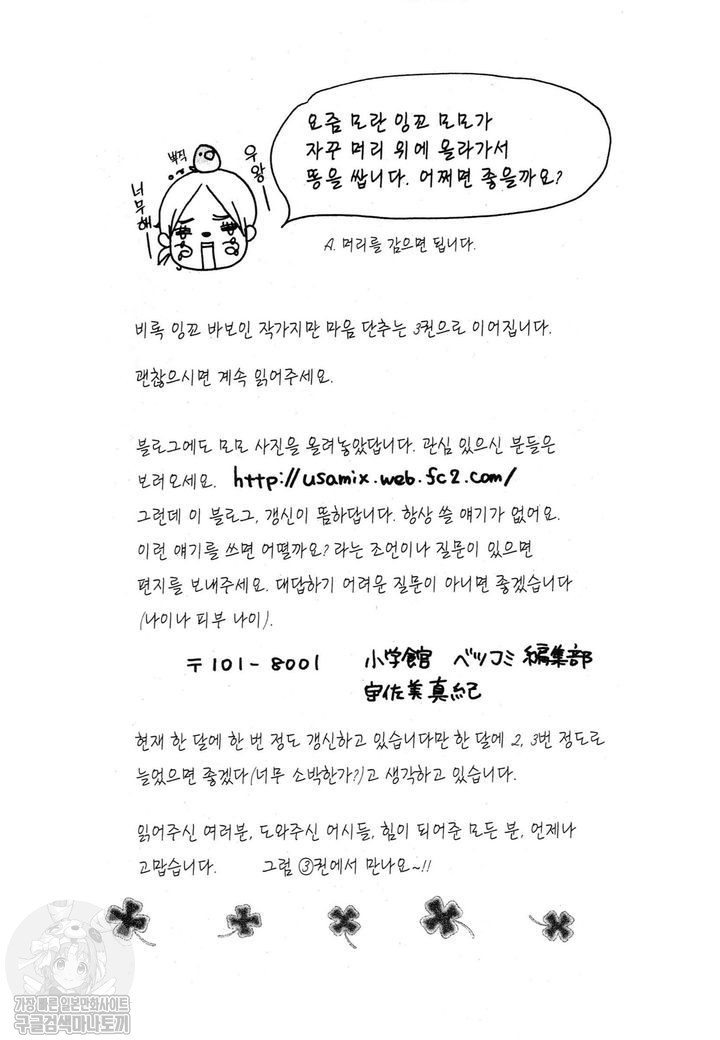 요즘 모란 잉꼬 모모가
자꾸 머리 위에 올라가서
똥을 쌉니다. 어쩌면 좋을까요?
빠직
우왕
너무해
A. 머리를 감으면 됩니다.
비록 잉꼬 바보인 작가지만 마음 단추는 3권으로 이어집니다.
괜찮으시면 계속 읽어주세요.
블로그에도 모모 사진을 올려놓았답니다. 관심 있으신 분들은
보러오세요. http://usamix.web.fc2.com/
그런데 이 블로그, 갱신이 뜸하답니다. 항상 쓸 얘기가 없어요.
이런 얘기를 쓰면 어떨까요? 라는 조언이나 질문이 있으면
편지를 보내주세요. 대답하기 어려운 질문이 아니면 좋겠습니다
(나이나 피부 나이).
〒101-8001 小学館 ベツコミ編集部
宇佐美真紀
현재 한 달에 한 번 정도 갱신하고 있습니다만 한 달에 2, 3번 정도로
늘었으면 좋겠다(너무 소박한가?)고 생각하고 있습니다.
읽어주신 여러분, 도와주신 어시들, 힘이 되어준 모든 분, 언제나
고맙습니다. 그럼 ③권에서 만나요~!!
가장 빠른 일본만화사이트
구글검색마나토끼